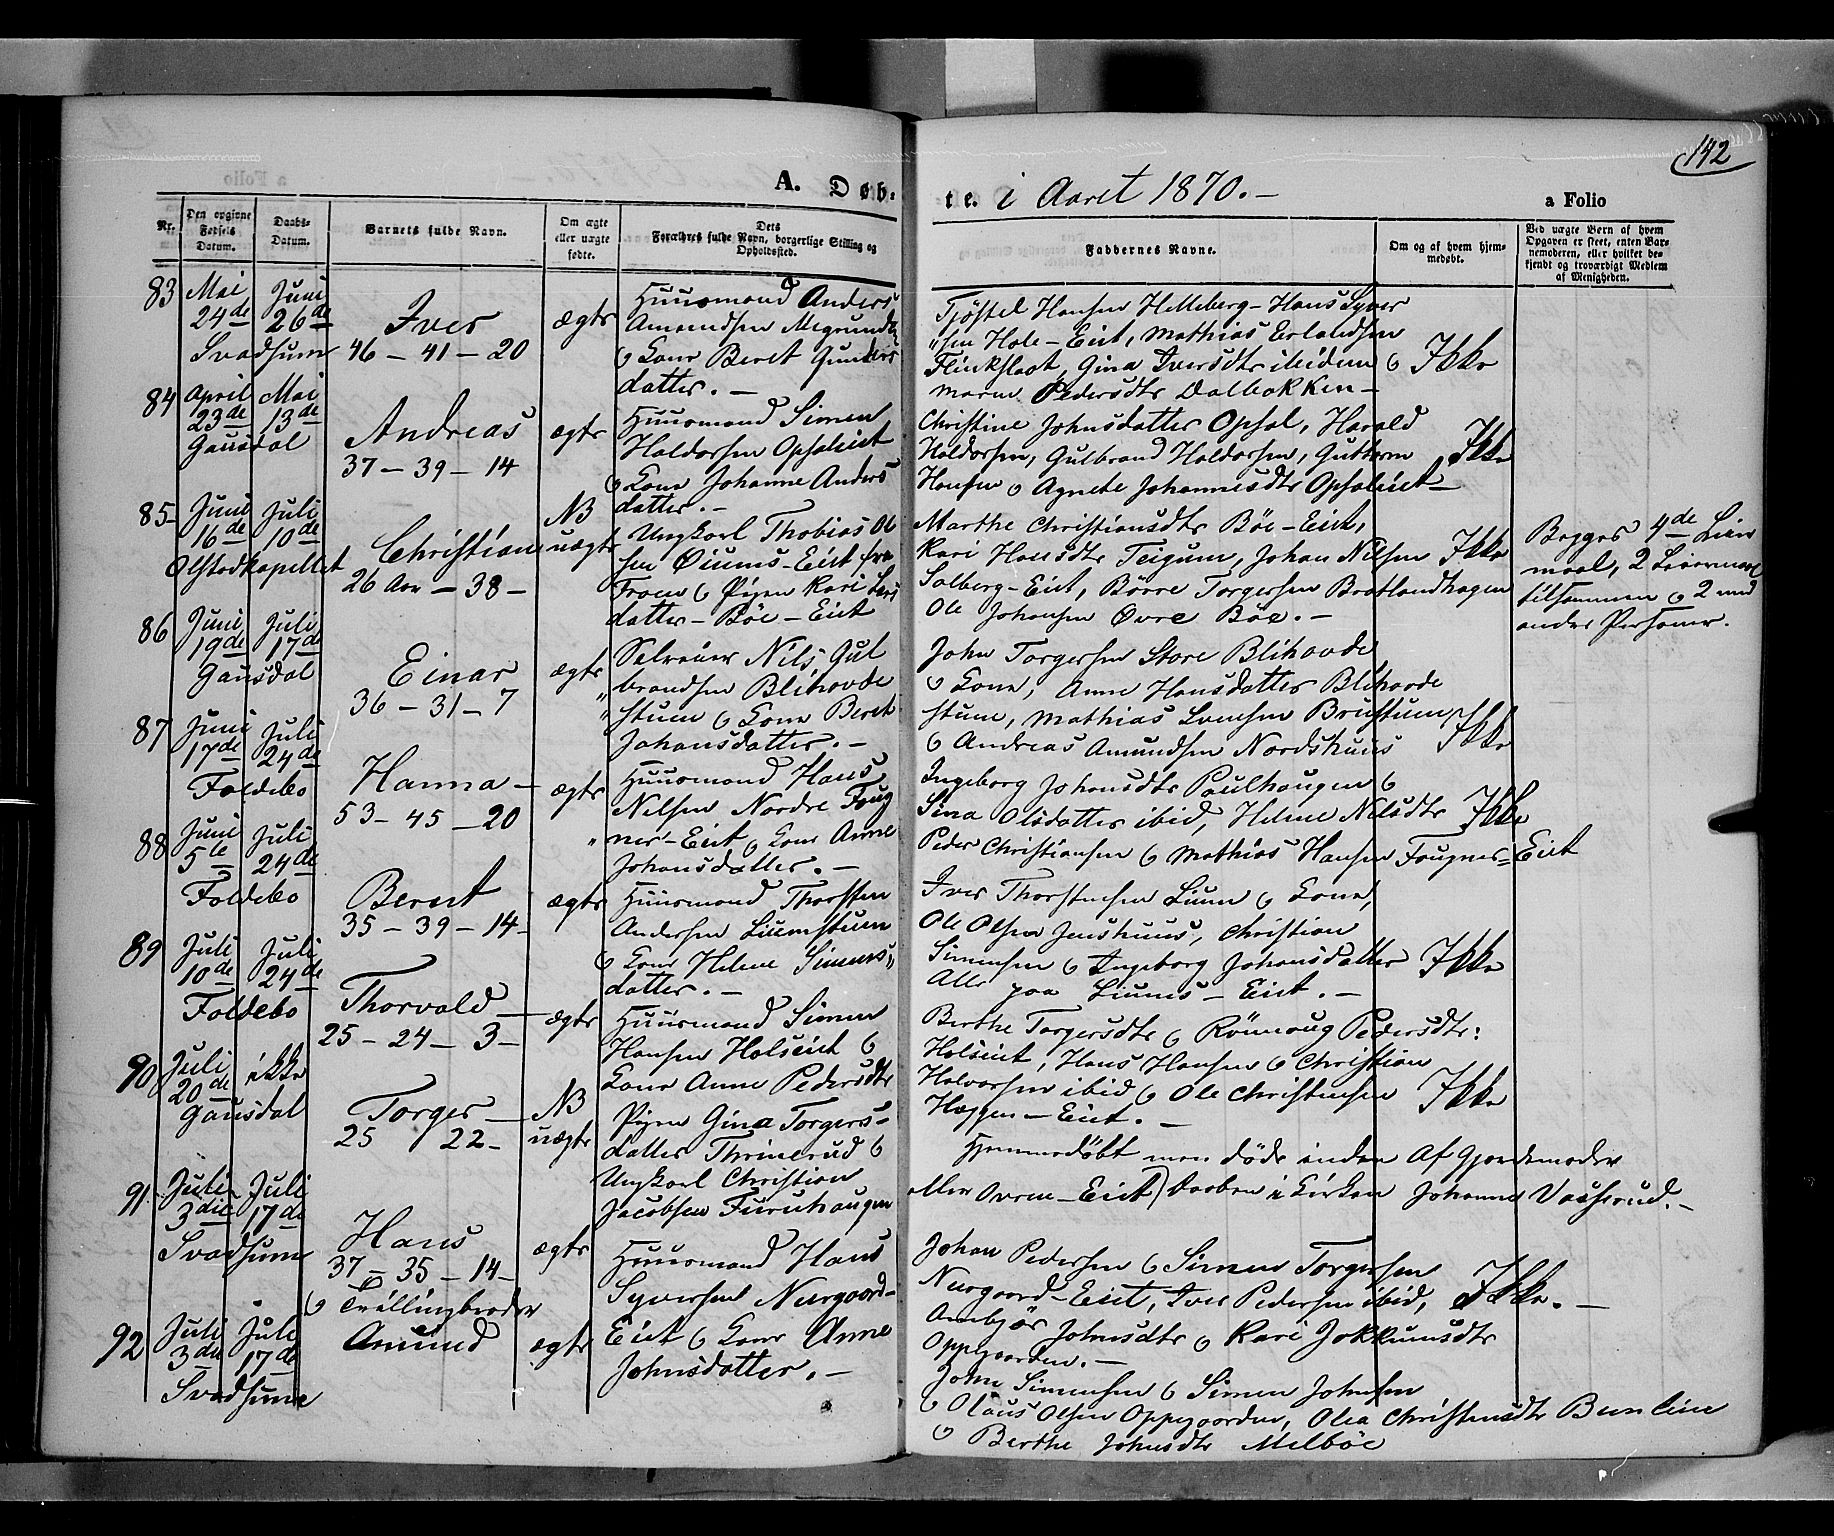 142
A. Døb-
te. i Aaret 1870.-
a Folio
Nr.
Den opgivne Fødsels Datum.
Daabs-Datum.
Barnets fulde Navn.
Om ægte eller uægte fødte.
Dets Forældres fulde Navn, borgerlige Stilling og Opholdssted.
Faddernes Navne.
Om og af hvem hjemmedøbt.
Ved uægte Børn af hvem Opgaven er skeet, enten Barnemoderen, eller hvilket bekjendt og troværdigt Medlem af Menigheden.
83
Mai 24de
Juni 26de
Svadsum
Iver
46 - 41 - 20
ægte
Huusmand Anders
Amundsen
& Kone Beret Gunders
datter. -
Tjöstel Hansen Helleberg - Hans Syver
"sen Hole - Eiet, Mathias Erlandsen
Gina Iversdtr ibidem &
Marie Pedersdtr Dalbakken -
Ikke
84
April 23de
Mai 13de
Gausdal
Andreas
37 - 39 - 14
ægte
Huusmand Simen
Haldorsen Opsaleiet
& Kone Johanne Anders
datter. -
Christine Johnsdatter Opsal, Harald
Haldorsen, Gulbrand Haldorsen, Guttorm
Hansen & Agnete Johannesdtr Opsaleiet -
Ikke
85
Juni 16de
Juli 10de
Olstadkapellet
Christian
26 Aar - 38 -
NB
uægte
Ungkarl Thobias Ol
sen Øiums - Eiet fra
Fron & Pigen Kari Lars
datter - Böe - Eiet
Marthe Christiansdtr Böe - Eiet,
Kari Hansdtr Teigum, Johan Nilsen
Solberg - Eiet, Börre Torgersen Bratlandhagen
Ole Johansen Øvre Böe. -
Ikke
Begges 4de Leier
maal, 2 Leiermaal
tilsammen & 2 med
andre Personer.
86
Juni 19de
Juli 17de
Gausdal
Einar
36 - 31 - 7
ægte
Selveier Nils Gul
brandsen Blihovde
"stuen & Kone Beret
Johansdatter. -
John Torgersen Store Blihovde
& Kone, Anne Hansdatter Blihovde
stuen, Mathias Svensen Brustuen
& Andreas Amundsen Nordshuus
Ikke
87
Juni 17de
Juli 24de
Foldebo
Hanna -
53 - 45 - 20
ægte
Huusmand Hans
Nilsen Nordre Foug
"ner - Eiet & Kone Anne
Johansdatter. -
Ingeborg Johansdtr Paulhaugen &
Sina Olsdatter ibid, Helene Nilsdtr
Peder Christiansen & Mathias Hansen Fougner - Eiet
Ikke
88
Juni 5te
Juli 24de
Foldebo
Bernt
35 - 39 - 14 -
ægte
Huusmand Thorsten
Andersen Liumstuen
& Kone Helene Simens"
datter. -
Iver Thorstensen Lium & Kone,
Ole Olsen Jenshuus, Christian
Simensen & Ingeborg Johansdatter
Alle paa Liums - Eiet. -
Ikke
89
Juli 10de
Juli 24de
Foldebo
Thorvald -
25 - 24 - 3 -
ægte
Huusmand Simen
Hansen Holseiet &
Kone Anne Pedersdtr
Berthe Torgersdtr & Rönnoug Pedersdtr:
Holseiet, Hans Hansen & Christian
Halvorsen ibid & Ole Christensen
Haggen - Eiet. -
Ikke
90
Juli 20de
ikke
Gausdal
Torger -
25 22 -
NB
uægte
Pigen Gina Torgers-
datter Thrinerud &
Ungkarl Christian
Jacobsen Furuhaugen
Hjemmedöbt men döde inden Af Gjordemoder
eller Ovren - Eiet) Daaben i Kirken Johanne Vasserud. -
91
Juli 3die
Juli 17de
Svadsum
Hans
37 - 35 - 14 -
& Trillingbroder
ægte
Huusmand Hans
Syversen Nergaard-
Eiet & Kone Anne
Johnsdatter. -
Johan Pedersen & Simen Torgersen
Nergaard - Eiet, Iver Pedersen ibid,
Annbjör Johnsdtr & Kari Jokkumsdtr
Oppegaarden. -
Ikke. -
92
Juli 3die
Juli 17de
Svadsum
Amund
ægte
John Simensen & Simen Johnsen
& Olaus Olsen Oppegaarden, Olea Christensdtr
& Berthe Johnsdtr Melböe